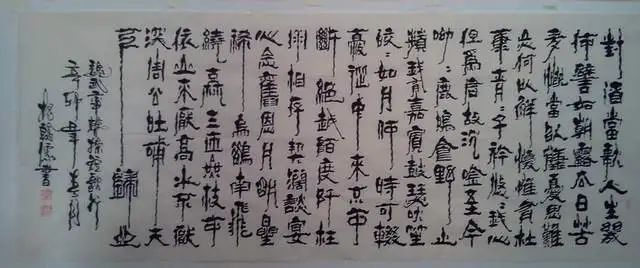 對酒當歌人生幾
何譬如朝露去日苦
多慨當以慷憂思難
忘何以解憂惟有杜
康青青子衿悠悠我心
但爲君故沉吟至今
呦呦鹿鳴食野之
蘋我有嘉賓鼓瑟吹笙
皎皎如月何時可輟
憂從中來不可
斷絕越陌度阡枉
用相存契闊談宴
心念舊恩月明星
稀烏鵲南飛
繞樹三匝枝可
依山不厭高水不厭
深周公吐哺天
歸心
魏武帝曹操短歌行
辛卯年春月
楊書